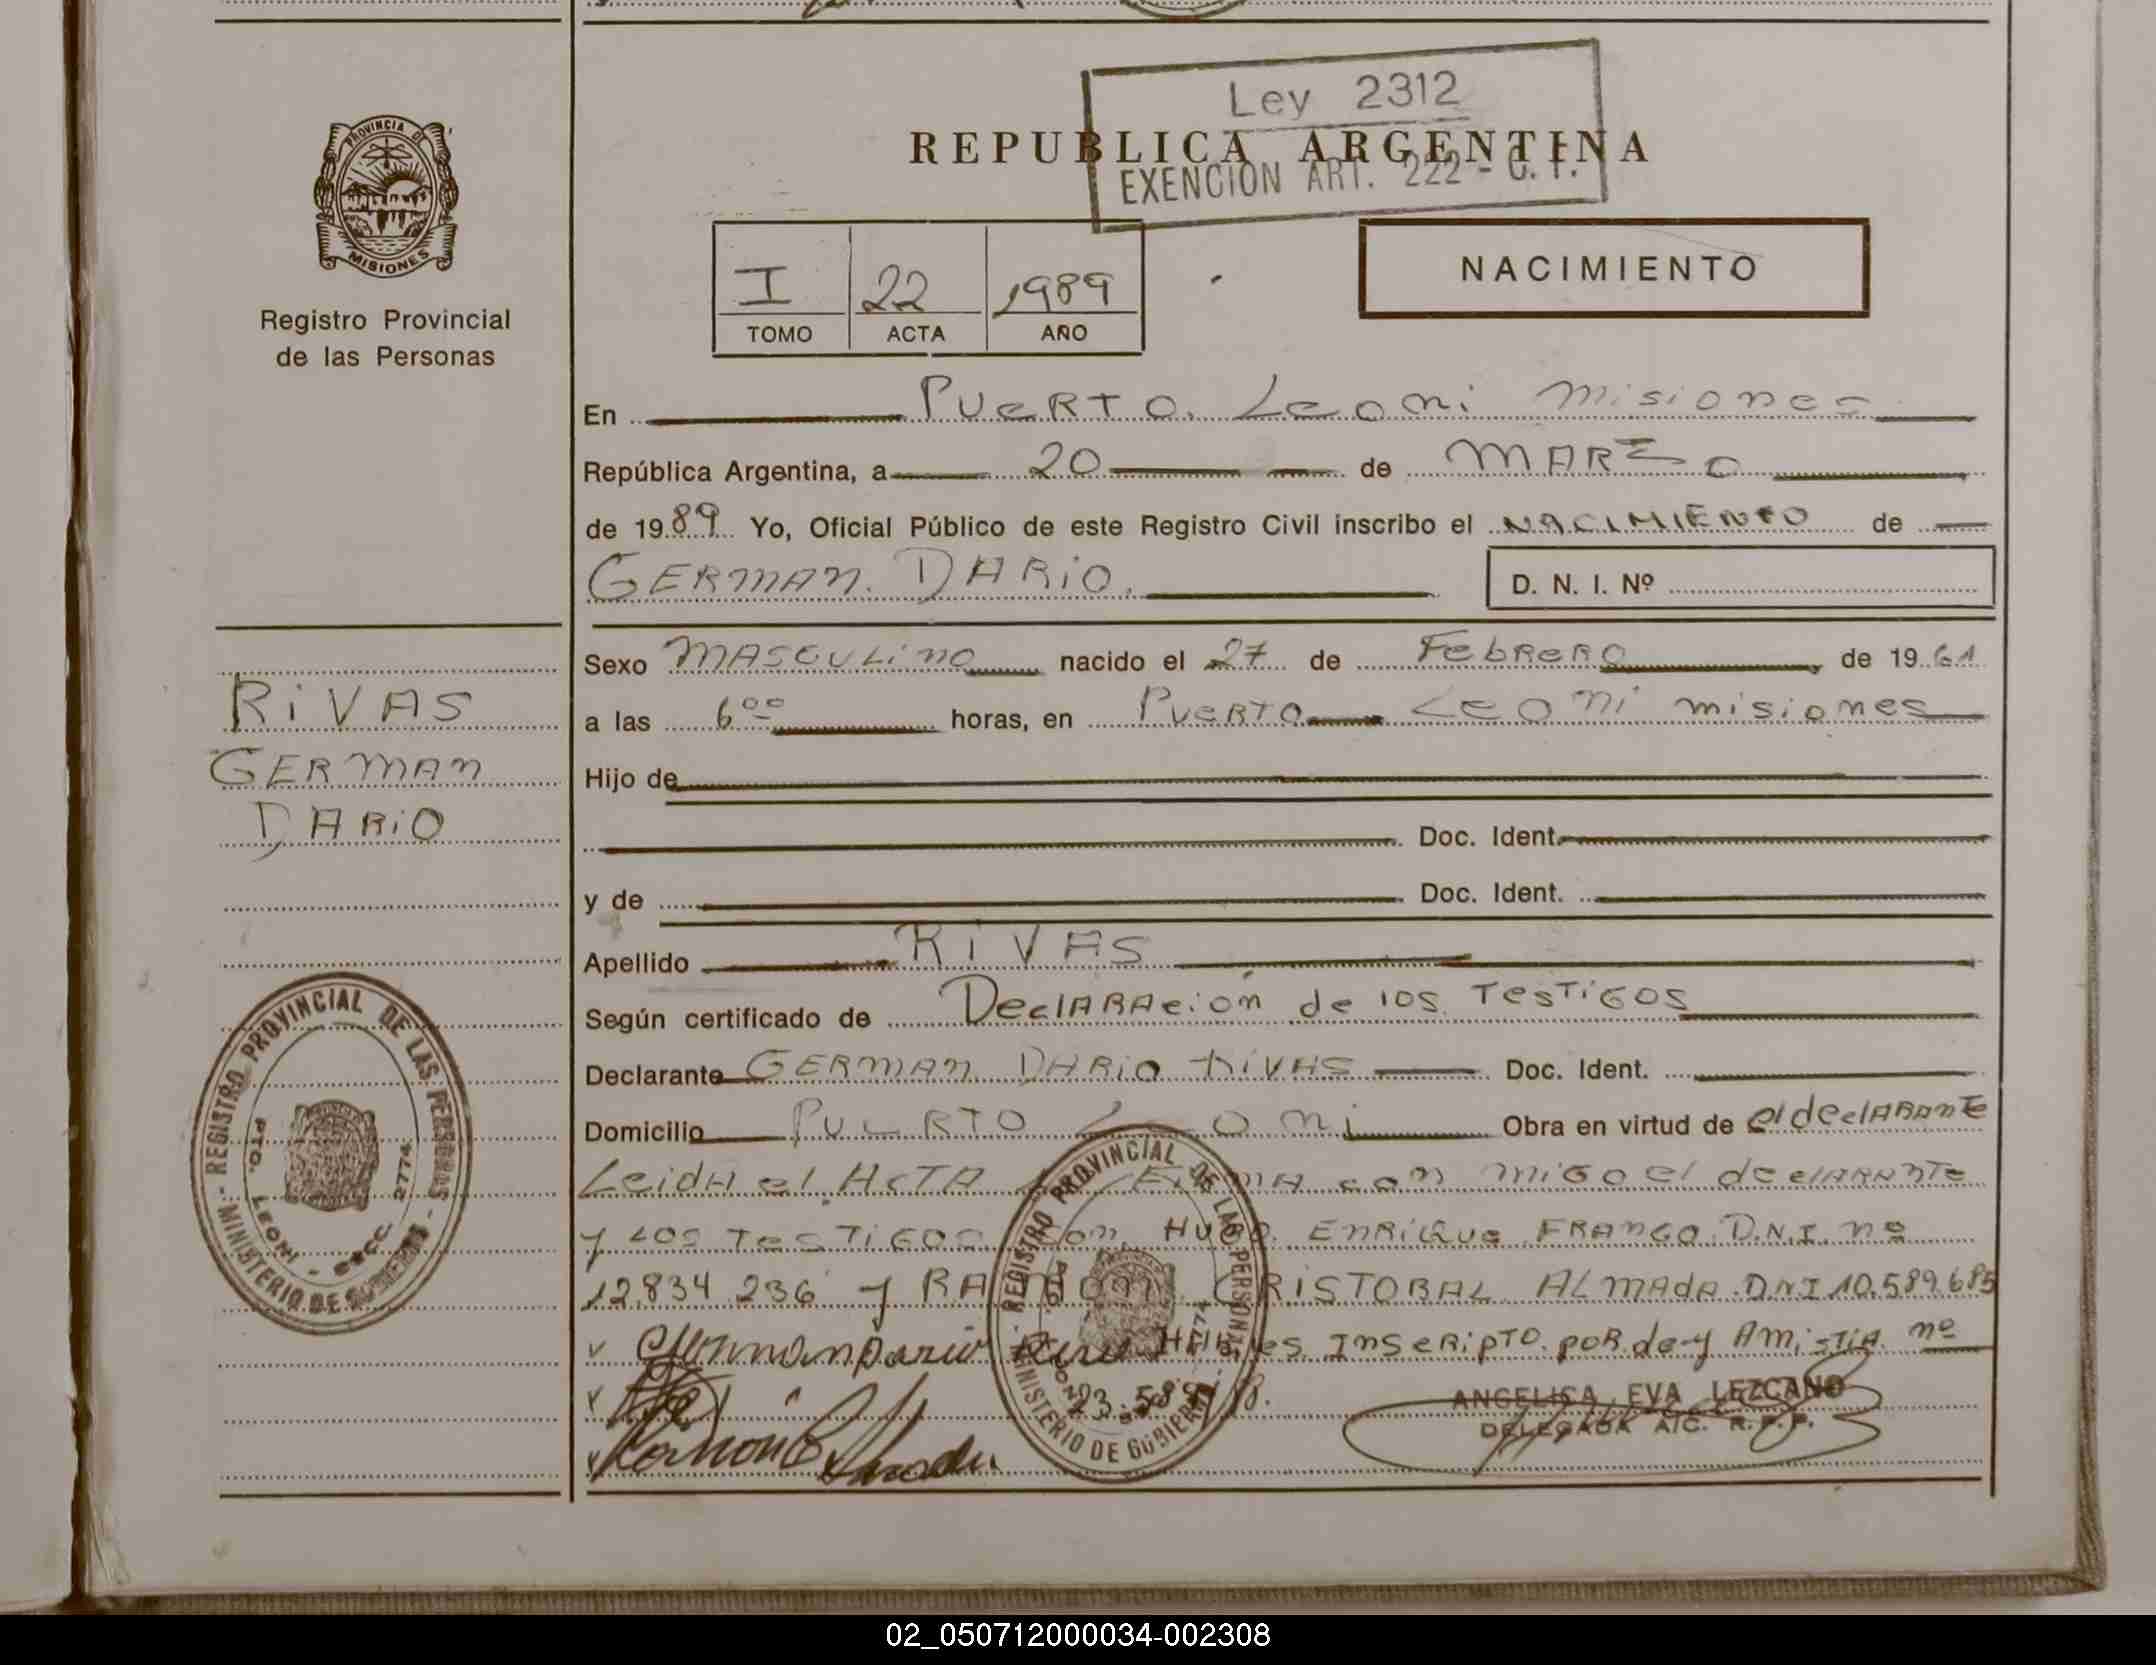 Ley 2312
REPUBLICA ARGENTINA
EXENCION ART. 222 - C. F.
PROVINCIA DE
MISIONES
Registro Provincial
de las Personas
I 22 1989
TOMO ACTA AÑO
NACIMIENTO
En Puerto Leoni Misiones
República Argentina, a 20 de MARZO
de 1989 Yo, Oficial Público de este Registro Civil inscribo el NACIMIENTO de
GERMAN DARIO D. N. I. Nº
Sexo MASCULINO nacido el 27 de Febrero de 1961
a las 6⁰⁰ horas, en Puerto Leoni misiones
Hijo de
Doc. Ident.
y de Doc. Ident.
Apellido RIVAS
Según certificado de DeclARAcion de los TesTiGos
Declarante GERMAN DARIO RIVAS Doc. Ident.
Domicilio PUERTO Leoni Obra en virtud de el declARAnTe
LeidA el ACTA FiRMA con miGo el declARAnTe
y Los TesTiGos Son HuGo EnRiQue FRAnCo D.N.I. nº
12.834 236 y RAmon CRISTOBAL ALmAdA D.N.I 10.589.685
Germán Dario Rivas InscRipTo poR Ley AmisTiA nº
23.
Ramon C Almada
ANGELICA EVA LEZCANO
DELEGADA A/C. R.P.P.
RIVAS
GERMAN
DARIO
REGISTRO PROVINCIAL DE LAS PERSONAS
MINISTERIO DE GOBIERNO
PTO. LEONI - SECC. 2774
REGISTRO PROVINCIAL DE LAS PERSONAS
MINISTERIO DE GOBIERNO
02_050712000034-002308